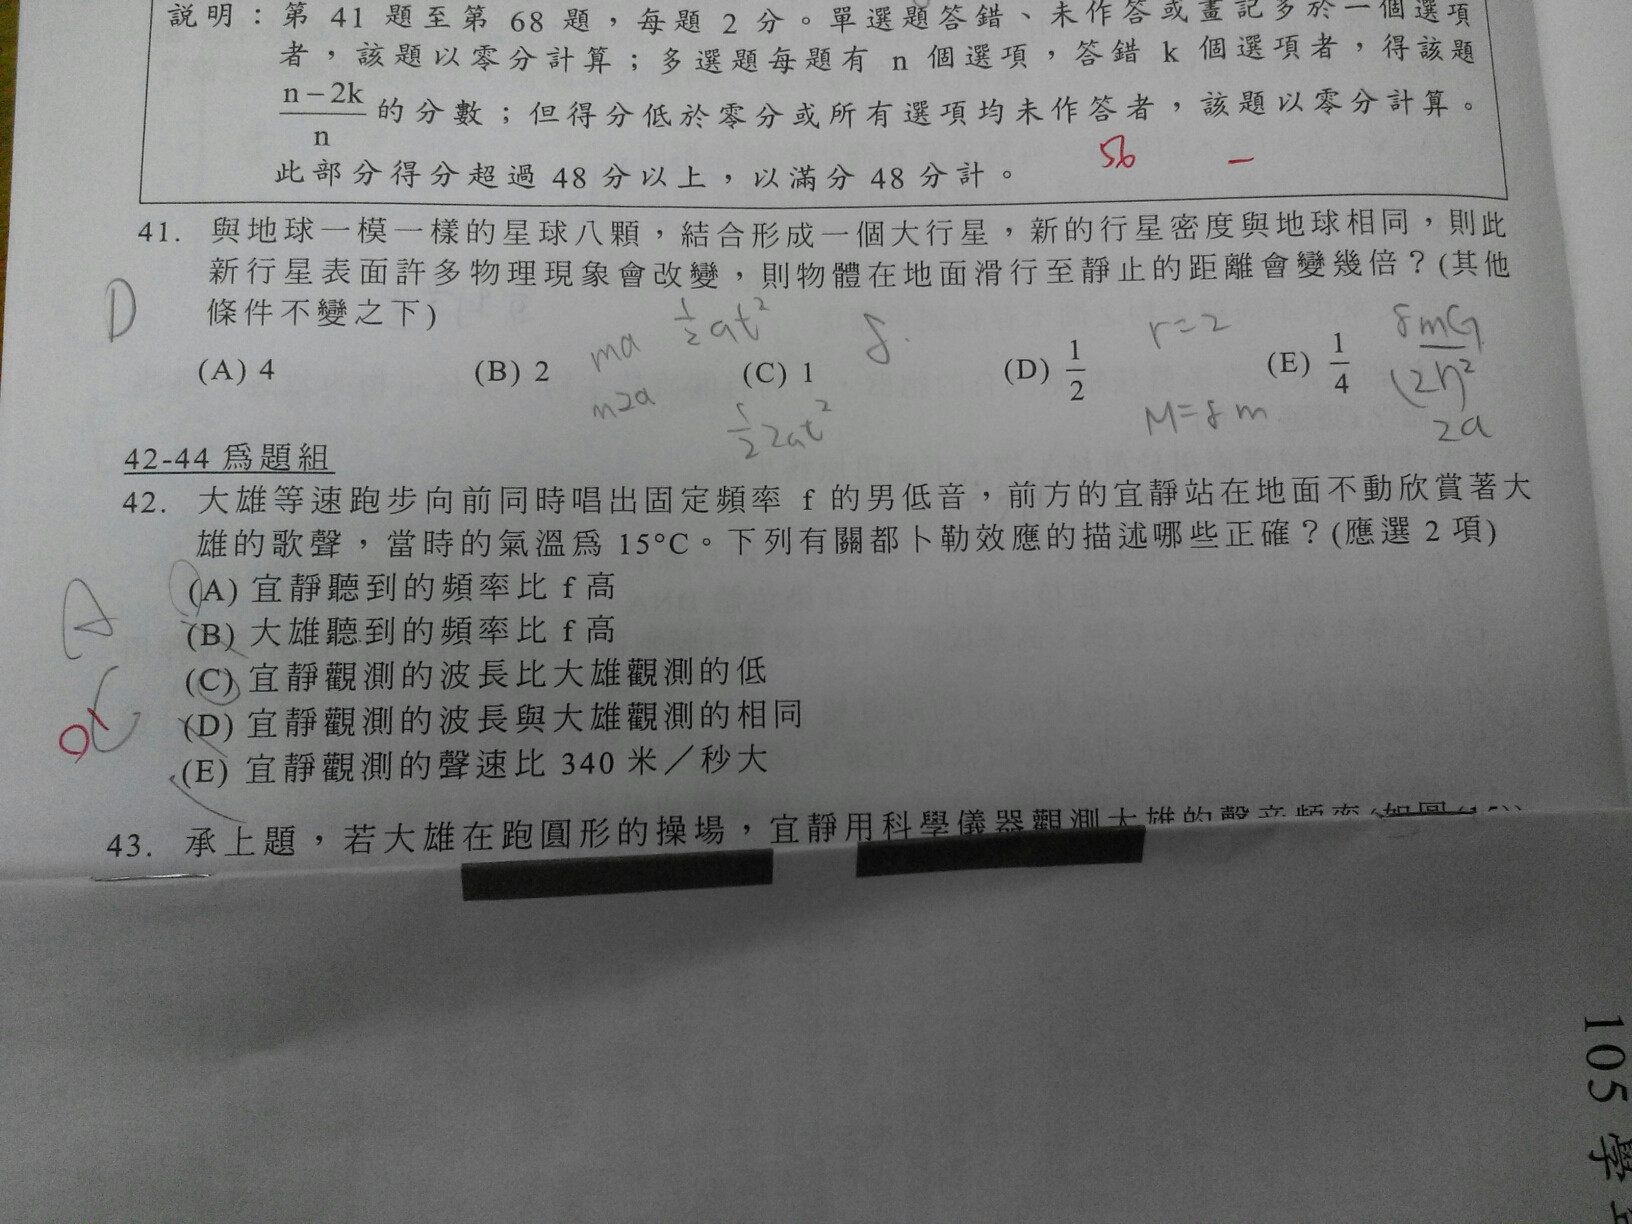 説明：第 41 題至第 68 題，每題 2 分。單選題答錯、未作答或畫記多於一個選項
者，該題以零分計算；多選題每題有 n 個選項，答錯 k 個選項者，得該題
n－2k
n
的分數；但得分低於零分或所有選項均未作答者，該題以零分計算。
此部分得分超過 48 分以上，以滿分 48 分計。
56 －
41. 與地球一模一樣的星球八顆，結合形成一個大行星，新的行星密度與地球相同，則此
新行星表面許多物理現象會改變，則物體在地面滑行至靜止的距離會變幾倍？(其他
條件不變之下)
D
(A) 4 (B) 2 (C) 1 (D) 1/2 (E) 1/4
ma
1/2 at²
8.
r=2
8mG
(2r)²
m2a
1/2 2at²
M=8m
2a
42-44 為題組
42. 大雄等速跑步向前同時唱出固定頻率 f 的男低音，前方的宜靜站在地面不動欣賞著大
雄的歌聲，當時的氣溫為 15°C。下列有關都卜勒效應的描述哪些正確？(應選 2 項)
(A) 宜靜聽到的頻率比 f 高
A
(B) 大雄聽到的頻率比 f 高
(C) 宜靜觀測的波長比大雄觀測的低
C
(D) 宜靜觀測的波長與大雄觀測的相同
(E) 宜靜觀測的聲速比 340 米／秒大
43. 承上題，若大雄在跑圓形的操場，宜靜用科學儀器觀測大雄的聲音頻率
105 學